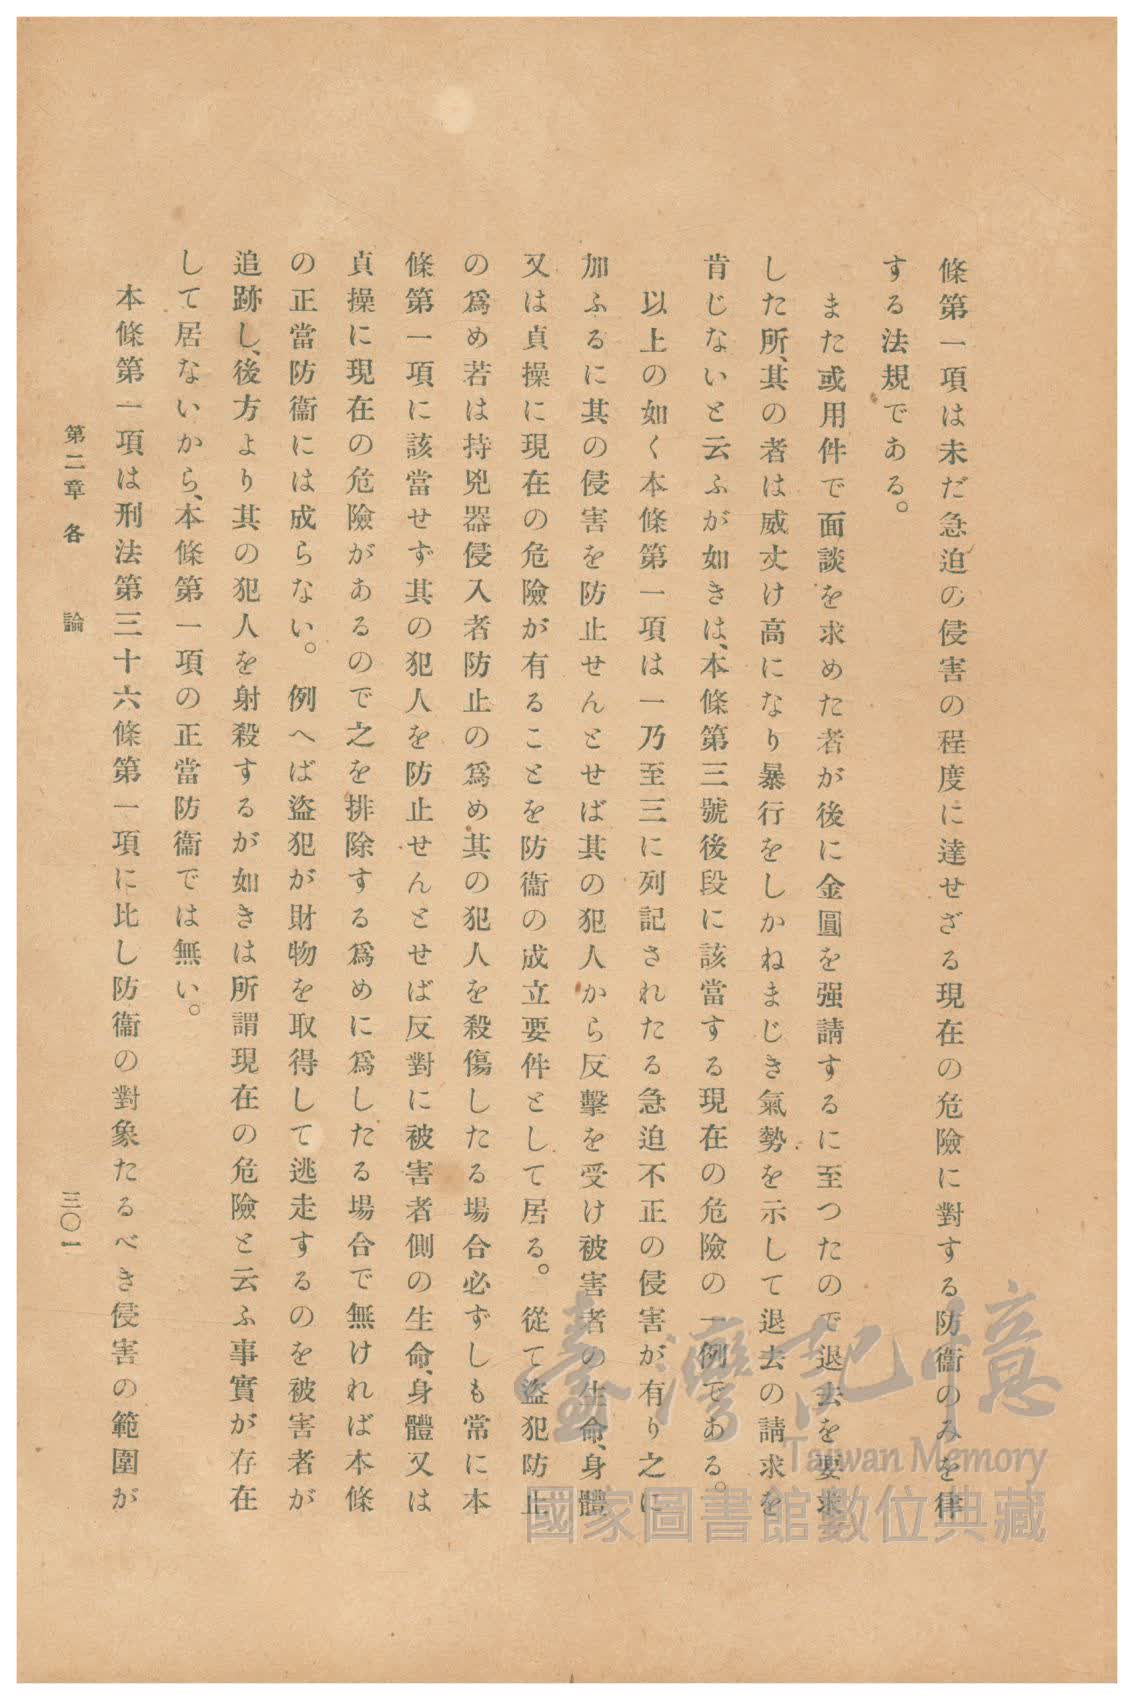 條第一項は未だ急迫の侵害の程度に達せざる現在の危險に對する防衞のみを律
する法規である。
また或用件で面談を求めた者が後に金圓を强請するに至つたので退去を要求
した所、其の者は威丈け高になり暴行をしかねまじき氣勢を示して退去の請求を
肯じないと云ふが如きは、本條第三號後段に該當する現在の危險の一例である。
以上の如く本條第一項は一乃至三に列記されたる急迫不正の侵害が有り之に
加ふるに其の侵害を防止せんとせば其の犯人から反擊を受け被害者の生命、身體
又は貞操に現在の危險が有ることを防衞の成立要件として居る。從て盜犯防止
の爲め若は持兇器侵入者防止の爲め其の犯人を殺傷したる場合必ずしも常に本
條第一項に該當せず其の犯人を防止せんとせば反對に被害者側の生命、身體又は
貞操に現在の危險があるので之を排除する爲めに爲したる場合で無ければ本條
の正當防衞には成らない。例へば盜犯が財物を取得して逃走するのを被害者が
追跡し、後方より其の犯人を射殺するが如きは所謂現在の危險と云ふ事實が存在
して居ないから、本條第一項の正當防衞では無い。
本條第一項は刑法第三十六條第一項に比し防衞の對象たるべき侵害の範圍が
第二章 各論
三〇一
臺灣記憶
Taiwan Memory
國家圖書館數位典藏